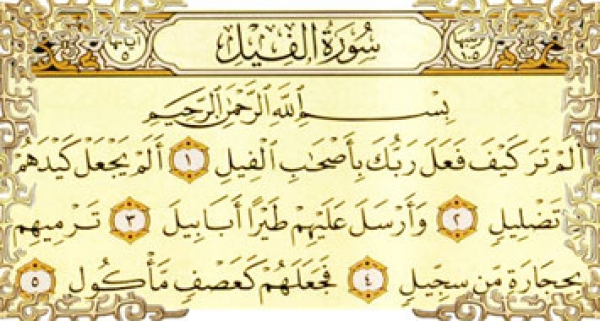 سُورَةُ الفِيْلِ
آياتها
٥
١٠٥
بِسْمِ اللَّهِ الرَّحْمَٰنِ الرَّحِيمِ
أَلَمْ تَرَ كَيْفَ فَعَلَ رَبُّكَ بِأَصْحَٰبِ الْفِيلِ ١ أَلَمْ يَجْعَلْ كَيْدَهُمْ
تَضْلِيلٍ ٢ وَأَرْسَلَ عَلَيْهِمْ طَيْرًا أَبَابِيلَ ٣ تَرْمِيهِم
بِحِجَارَةٍ مِّن سِجِّيلٍ ٤ فَجَعَلَهُمْ كَعَصْفٍ مَّأْكُولٍ ٥